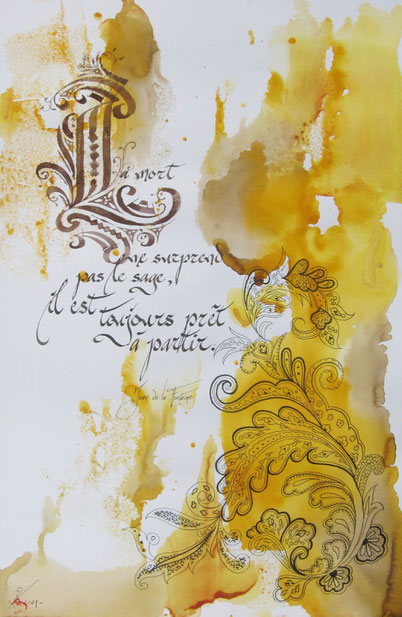 La mort
ne surprend
pas le sage,
il est
toujours prêt
à partir.
Jean de la Fontaine